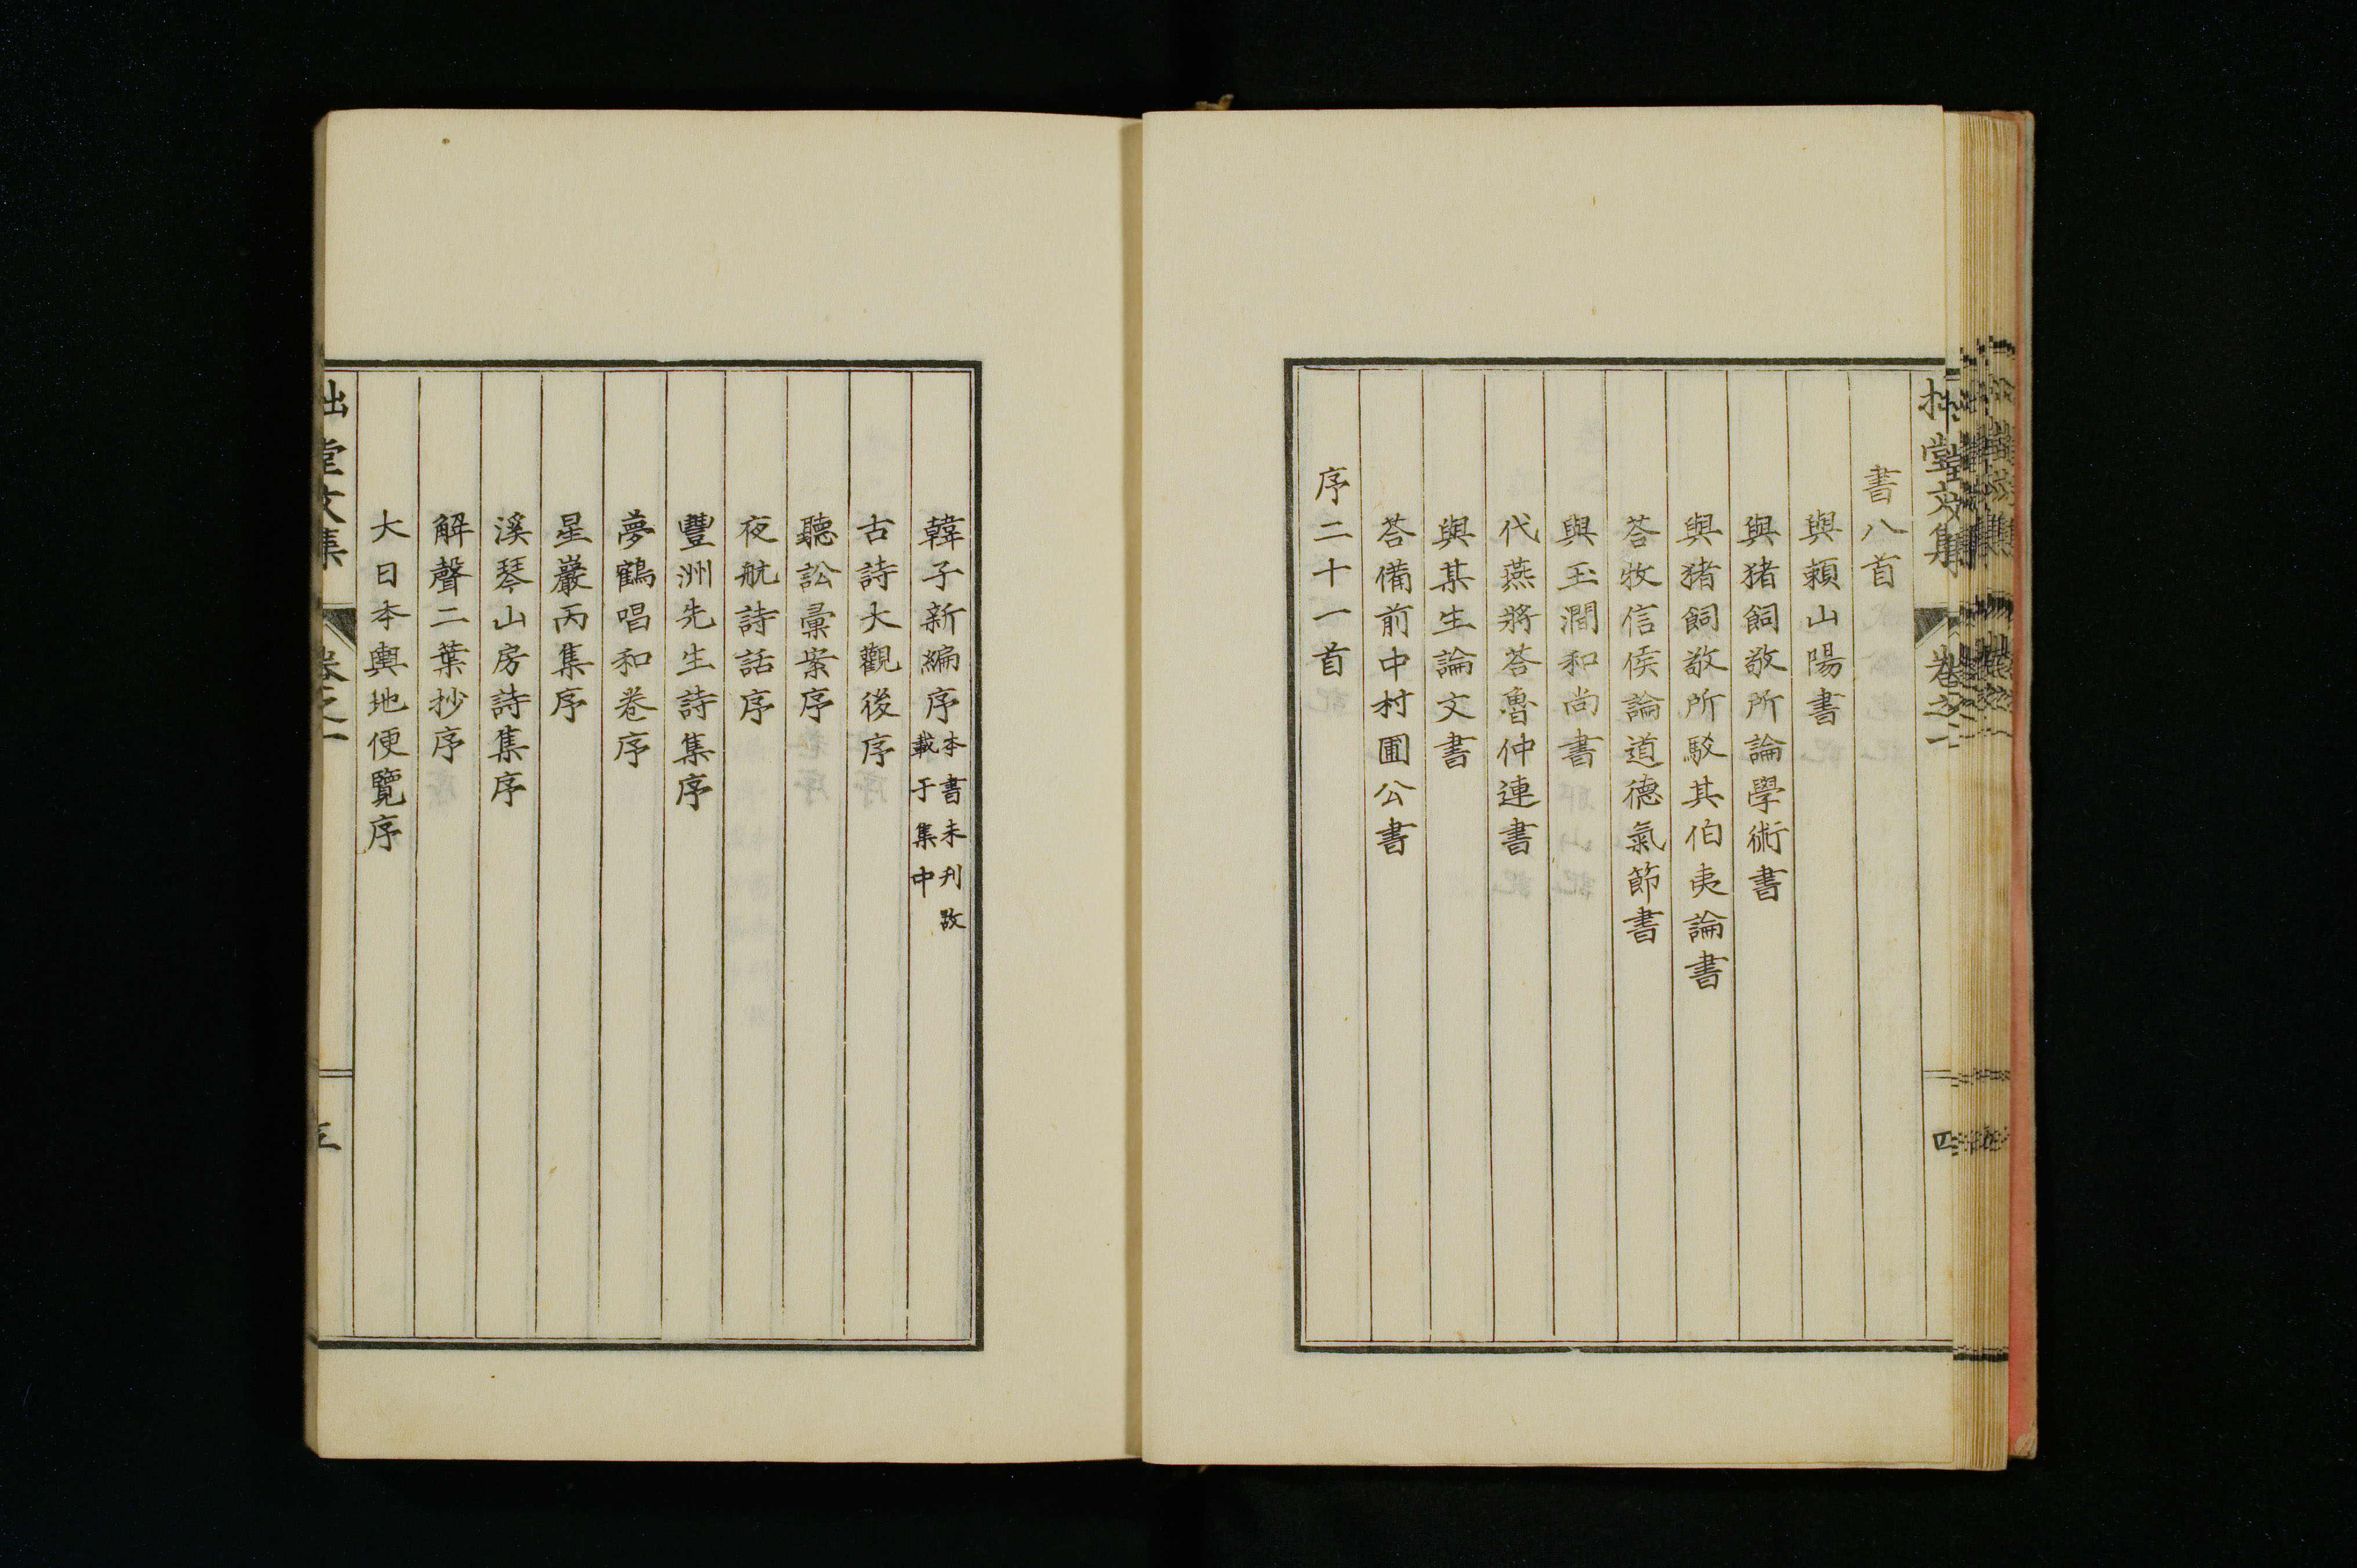 書八首
與賴山陽書
與猪飼敬所論學術書
與猪飼敬所駁其伯夷論書
荅牧信侯論道德氣節書
與玉澗和尚書
代燕將荅魯仲連書
與某生論文書
荅備前中村圃公書
序二十一首
韓子新編序本書未刊故載于集中
古詩大觀後序
聽訟彙案序
夜航詩話序
豐洲先生詩集序
夢鶴唱和卷序
星巖丙集序
溪琴山房詩集序
解聲二葉抄序
大日本輿地便覽序
拙堂文集 卷之一